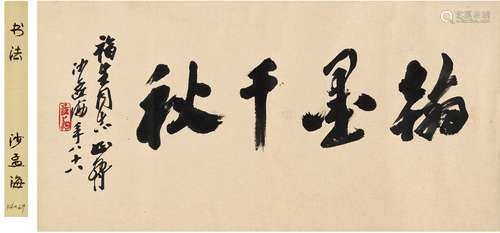 翰墨千秋
福生同志正
沙孟海年八十八
书法 沙孟海